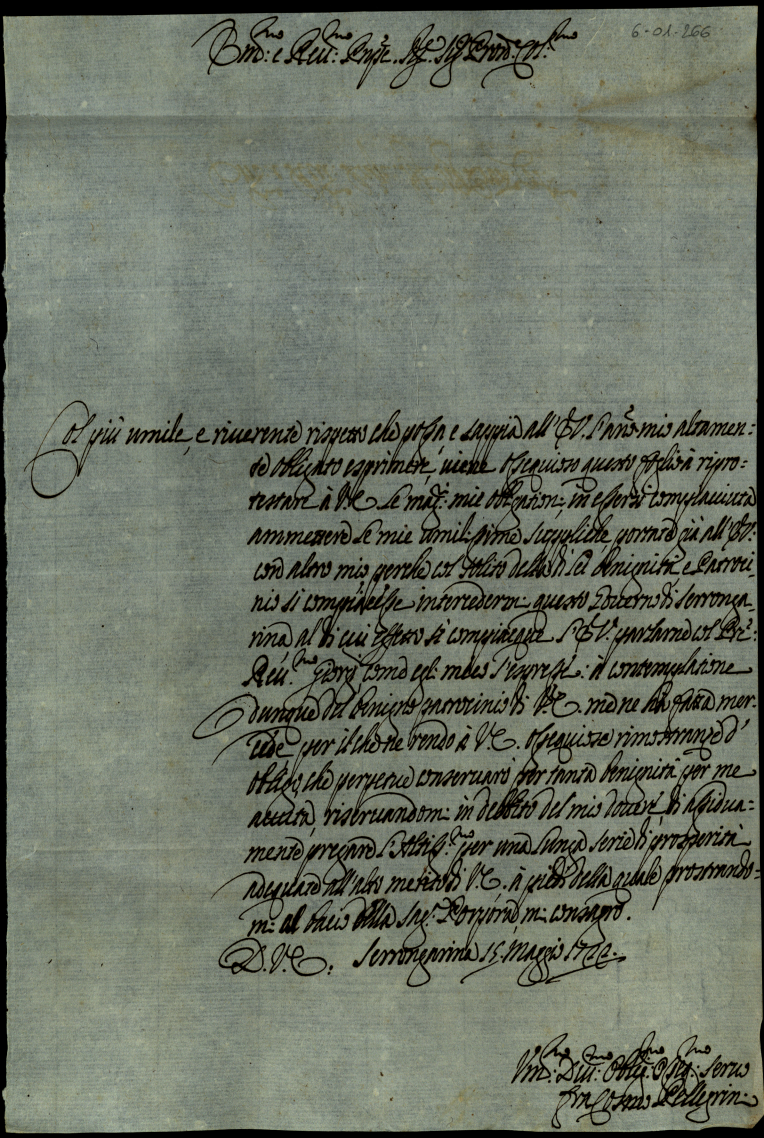 6-01-266
Em:mo e Reu:mo Pnpe Sig. Sig. Prone Col:mo
Col più umile, e riuerente rispetto che possa e sappia all'E.V. l'anō mio altamen=
te obligato esprimere, uiene ossequioso questo foglio à ripro=
testare à V.E. le mag: mie obligation: in essersi compiacciuta
ammettere le mie umilissime suppliche portate già all'E.V.
con altro mio perche col solito della di lei benignità e Patroci=
nio si compiacesse intercedermi questo Gouerno di Serronga=
rina al di cui effetto si compiacque l'E.V. parlarne col Pre:
Reu:mo Giorgi come egli meco l'espresse: à contemplatione
dunque del benigno patrocinio di V.E. me ne hà fatta mer=
cede per il che ne rendo à V.E. ossequiose rimostranze d'
obligo, che perpetue conseruarò per tanta benignità per me
hauuta, riseruandomi in debbito del mio douere, di assidua=
mente pregare l'Altiss:mo per una lunga serie di prosperità
adeguate all'alto merito di V.E. à piedi della quale prostrando=
mi al bacio della Sag: Porpora mi consagro.
D. V. E. Serrongarina 15 Maggio 1722.
Um:mo Diu:mo Oblig:mo Osseq:mo Seruo
fra Cosimo Pellegrini